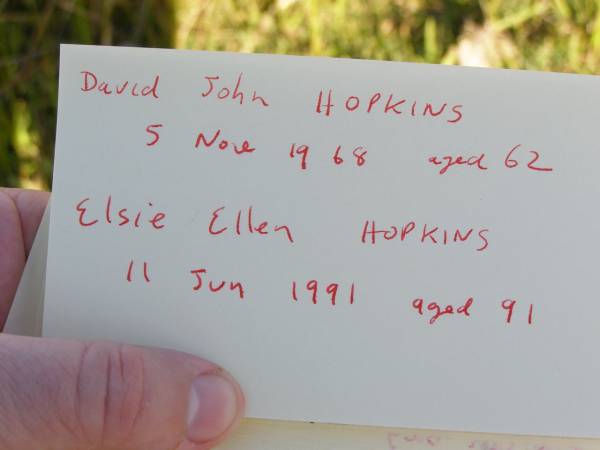 David John HOPKINS
5 Nov 1968 aged 62
Elsie Ellen HOPKINS
11 Jun 1991 aged 91